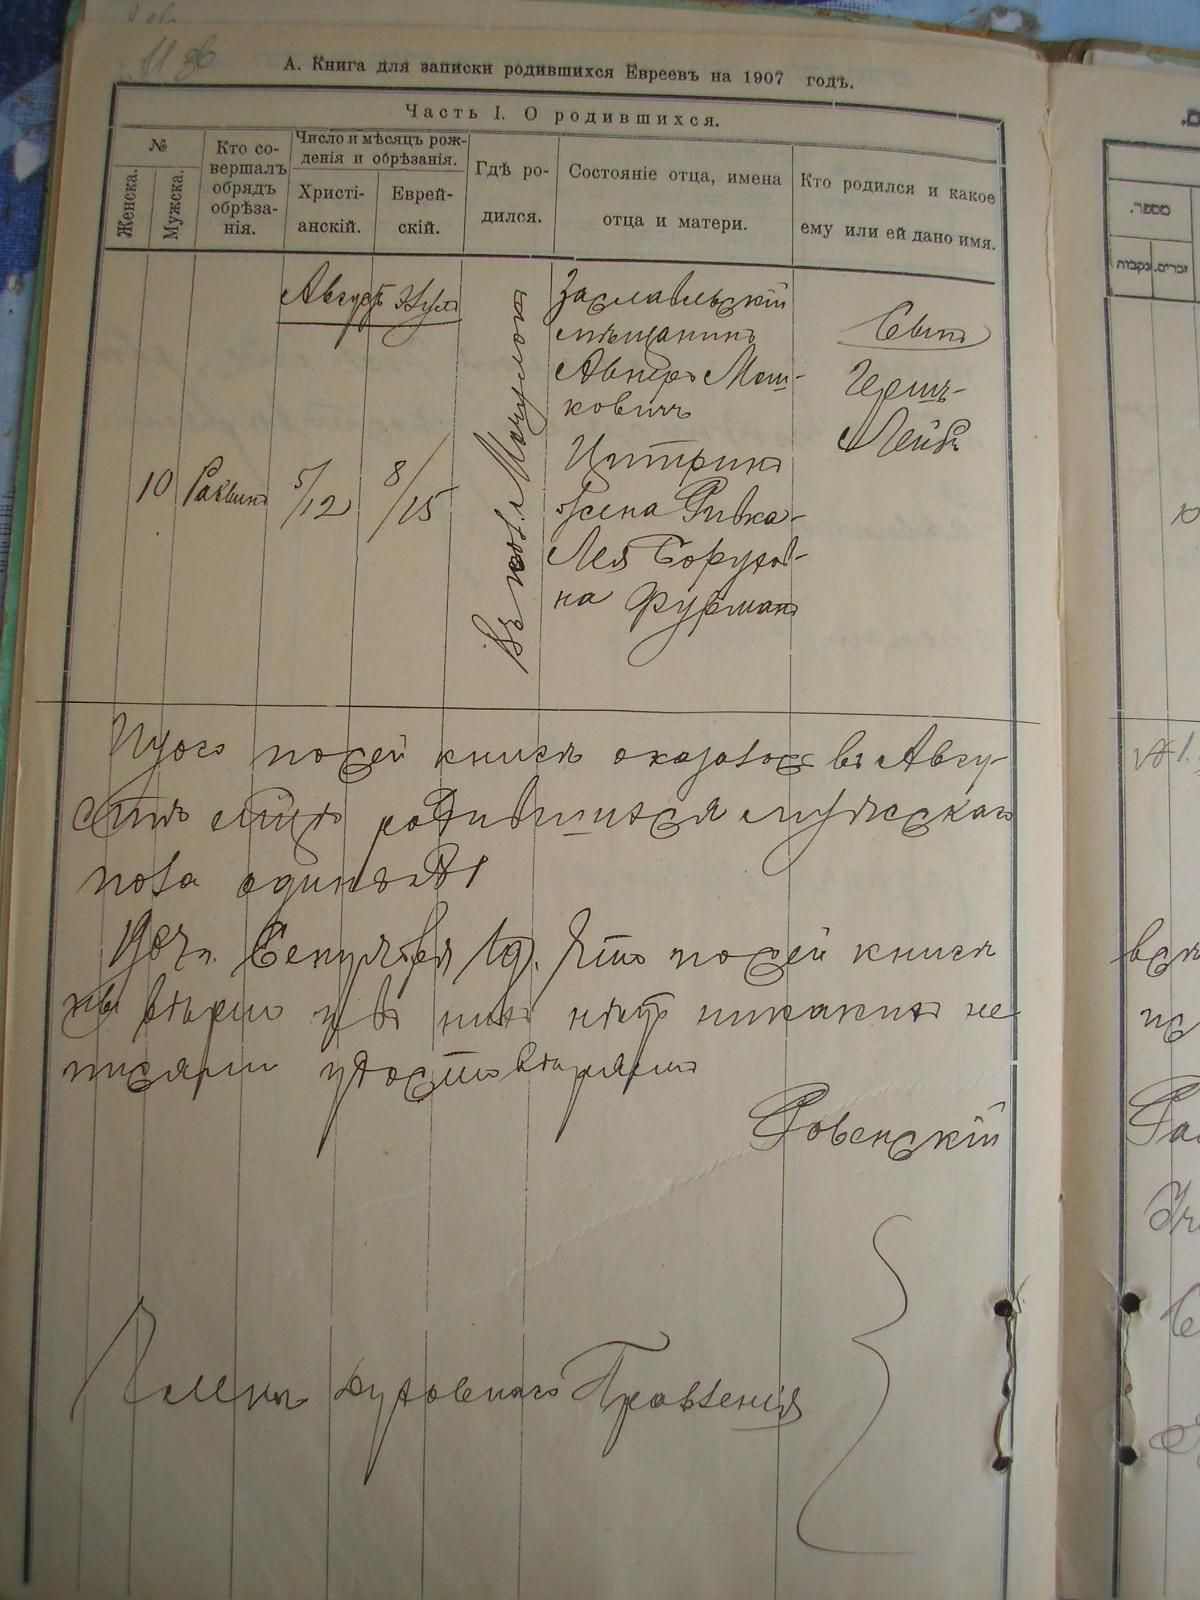 11 об
А. Книга для записки родившихся Евреевъ на 1907 годъ.
Часть I. О родившихся.
№
Женска.
Мужска.
Кто со-
вершалъ
обрядъ
обрѣза-
нія.
Число и мѣсяцъ рож-
денія и обрѣзанія.
Христі-
анскій.
Еврей-
скій.
Гдѣ ро-
дился.
Состояніе отца, имена
отца и матери.
Кто родился и какое
ему или ей дано имя.
Августъ
10
5/12
8/15
Въ
Заславльскій
мѣщанинъ
Авнеръ Мош-
ковичъ
Цитринъ
Жена Ривка-
Лея Борухов-
на Фурманъ
Сынъ
Герш-
Лейбъ
по сей книгѣ оказалось въ Авгу-
стѣ родившихся мужскаго
пола одинъ 1
1907 г. Сентября Что по сей книгѣ
вѣрны и въ нихъ нѣтъ никакихъ не
удостовѣряемъ
Ровенскій
Члены духовнаго Правленія
מספר.
נקבות.
זכרים.
10